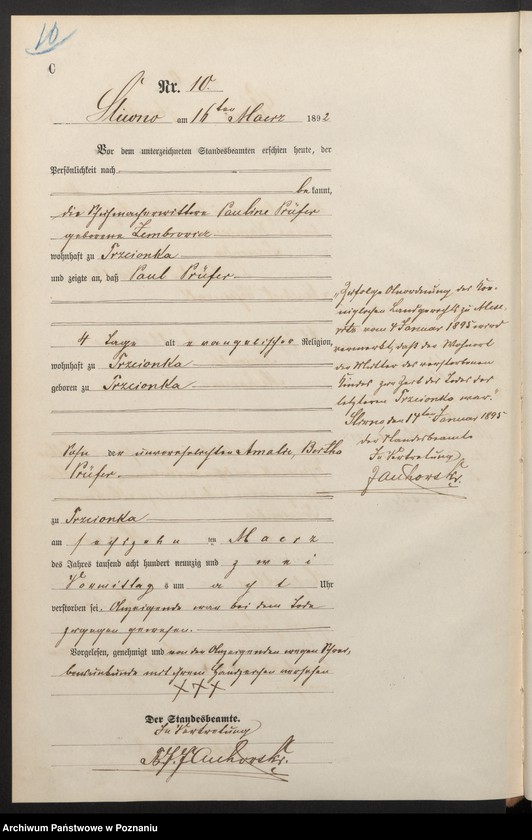 10
C
Nr. 10.
Sliwno am 16ten Maerz 1892
Vor dem unterzeichneten Standesbeamten erschien heute, der
Persönlichkeit nach
be kannt,
die Schuhmacherwittwe Pauline Prüfer
geborene
wohnhaft zu Trzcionka
und zeigte an, daß Paul Prüfer
4 Tage alt evangelischer Religion,
wohnhaft zu Trzcionka
geboren zu Trzcionka
Sohn der unverehelichten Amalie, Bertha
Prüfer.
zu Trzcionka
am sechzehn ten Maerz
des Jahres tausend acht hundert neunzig und zwei
Vormittags um acht Uhr
verstorben sei. Anzeigende war bei dem Tode
zugegen gewesen.
Vorgelesen, genehmigt und von der Anzeigenden wegen Schrei-
bensunkunde mit ihrem Handzeichen versehen
+++
Der Standesbeamte.
In Vertretung
Jauhorski.
"Zufolge Anordnung des Kö-
niglichen Landgerichts zu Mese-
ritz vom 4 Januar 1895 wird
vermerkt, daß der Wohnort
der Mutter des verstorbenen
Kindes zur Zeit des Todes des
letzteren Trzcionka war."
Sliwno, den 17ten Januar 1895
Der Standesbeamte
In Vertretung
Jauhorski.
Archiwum Państwowe w Poznaniu